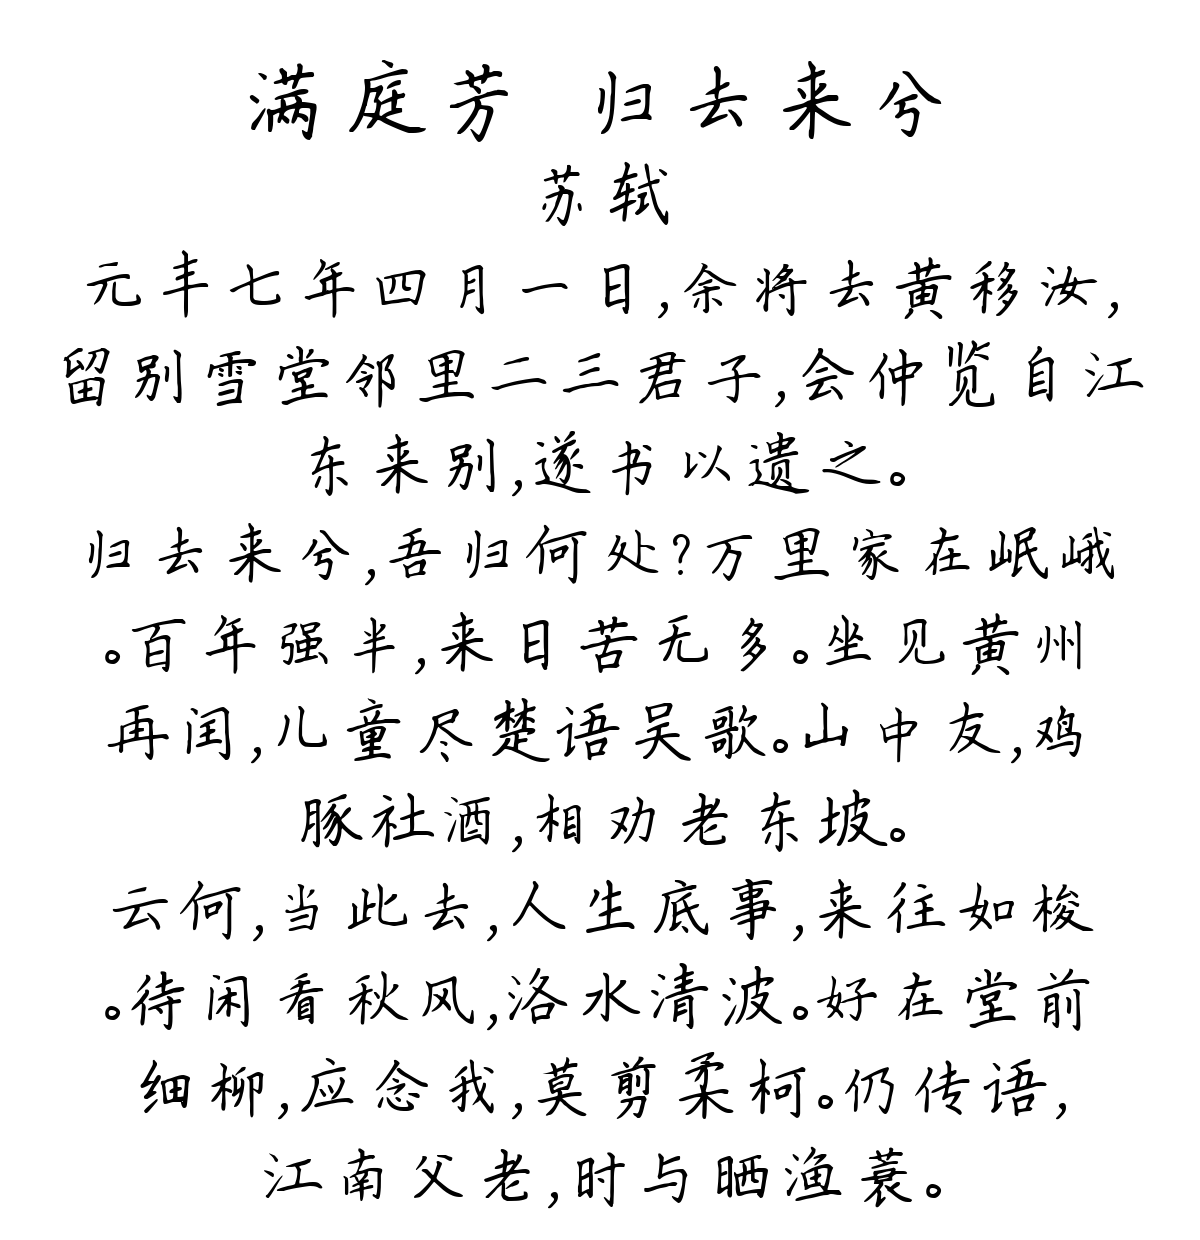 满庭芳 归去来兮
苏轼
元丰七年四月一日,余将去黄移汝,
留别雪堂邻里二三君子,会仲览自江
东来别,遂书以遗之。
归去来兮,吾归何处?万里家在岷峨
。百年强半,来日苦无多。坐见黄州
再闰,儿童尽楚语吴歌。山中友,鸡
豚社酒,相劝老东坡。
云何,当此去,人生底事,来往如梭
。待闲看秋风,洛水清波。好在堂前
细柳,应念我,莫剪柔柯。仍传语,
江南父老,时与晒渔蓑。